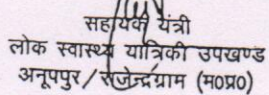 सहायक यंत्री
लोक स्वास्थ्य यांत्रिकी उपखण्ड
अनूपपुर/राजेन्द्रग्राम (म0प्र0)